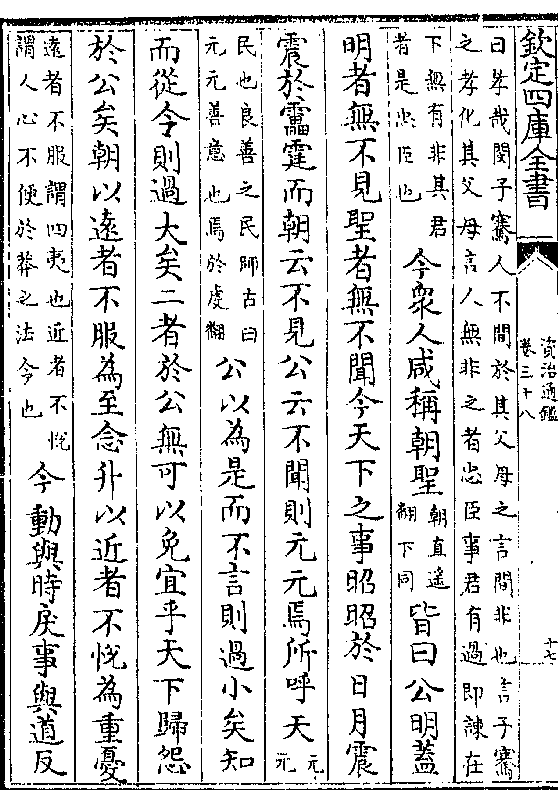 欽定四庫全書
資治通鑑
卷三十八
十七
曰孝哉閔子騫人不間於其父母之言間非也言子騫
之孝化其父母言人無非之者忠臣事君有過即諫在
下無有非其君
者是忠臣也
今衆人咸稱朝聖
朝直遥
翻下同
皆曰公明蓋
明者無不見聖者無不聞今天下之事昭昭於日月震
震於靁霆而朝云不見公云不聞則元元焉所呼天
元
元
民也良善之民師古曰
元元善意也焉於虔翻
公以為是而不言則過小矣知
而從令則過大矣二者於公無可以免宜乎天下歸怨
於公矣朝以遠者不服為至念升以近者不悅為重憂
遠者不服謂四夷也近者不悅
謂人心不便於莽之法令也
今動與時戾事與道反